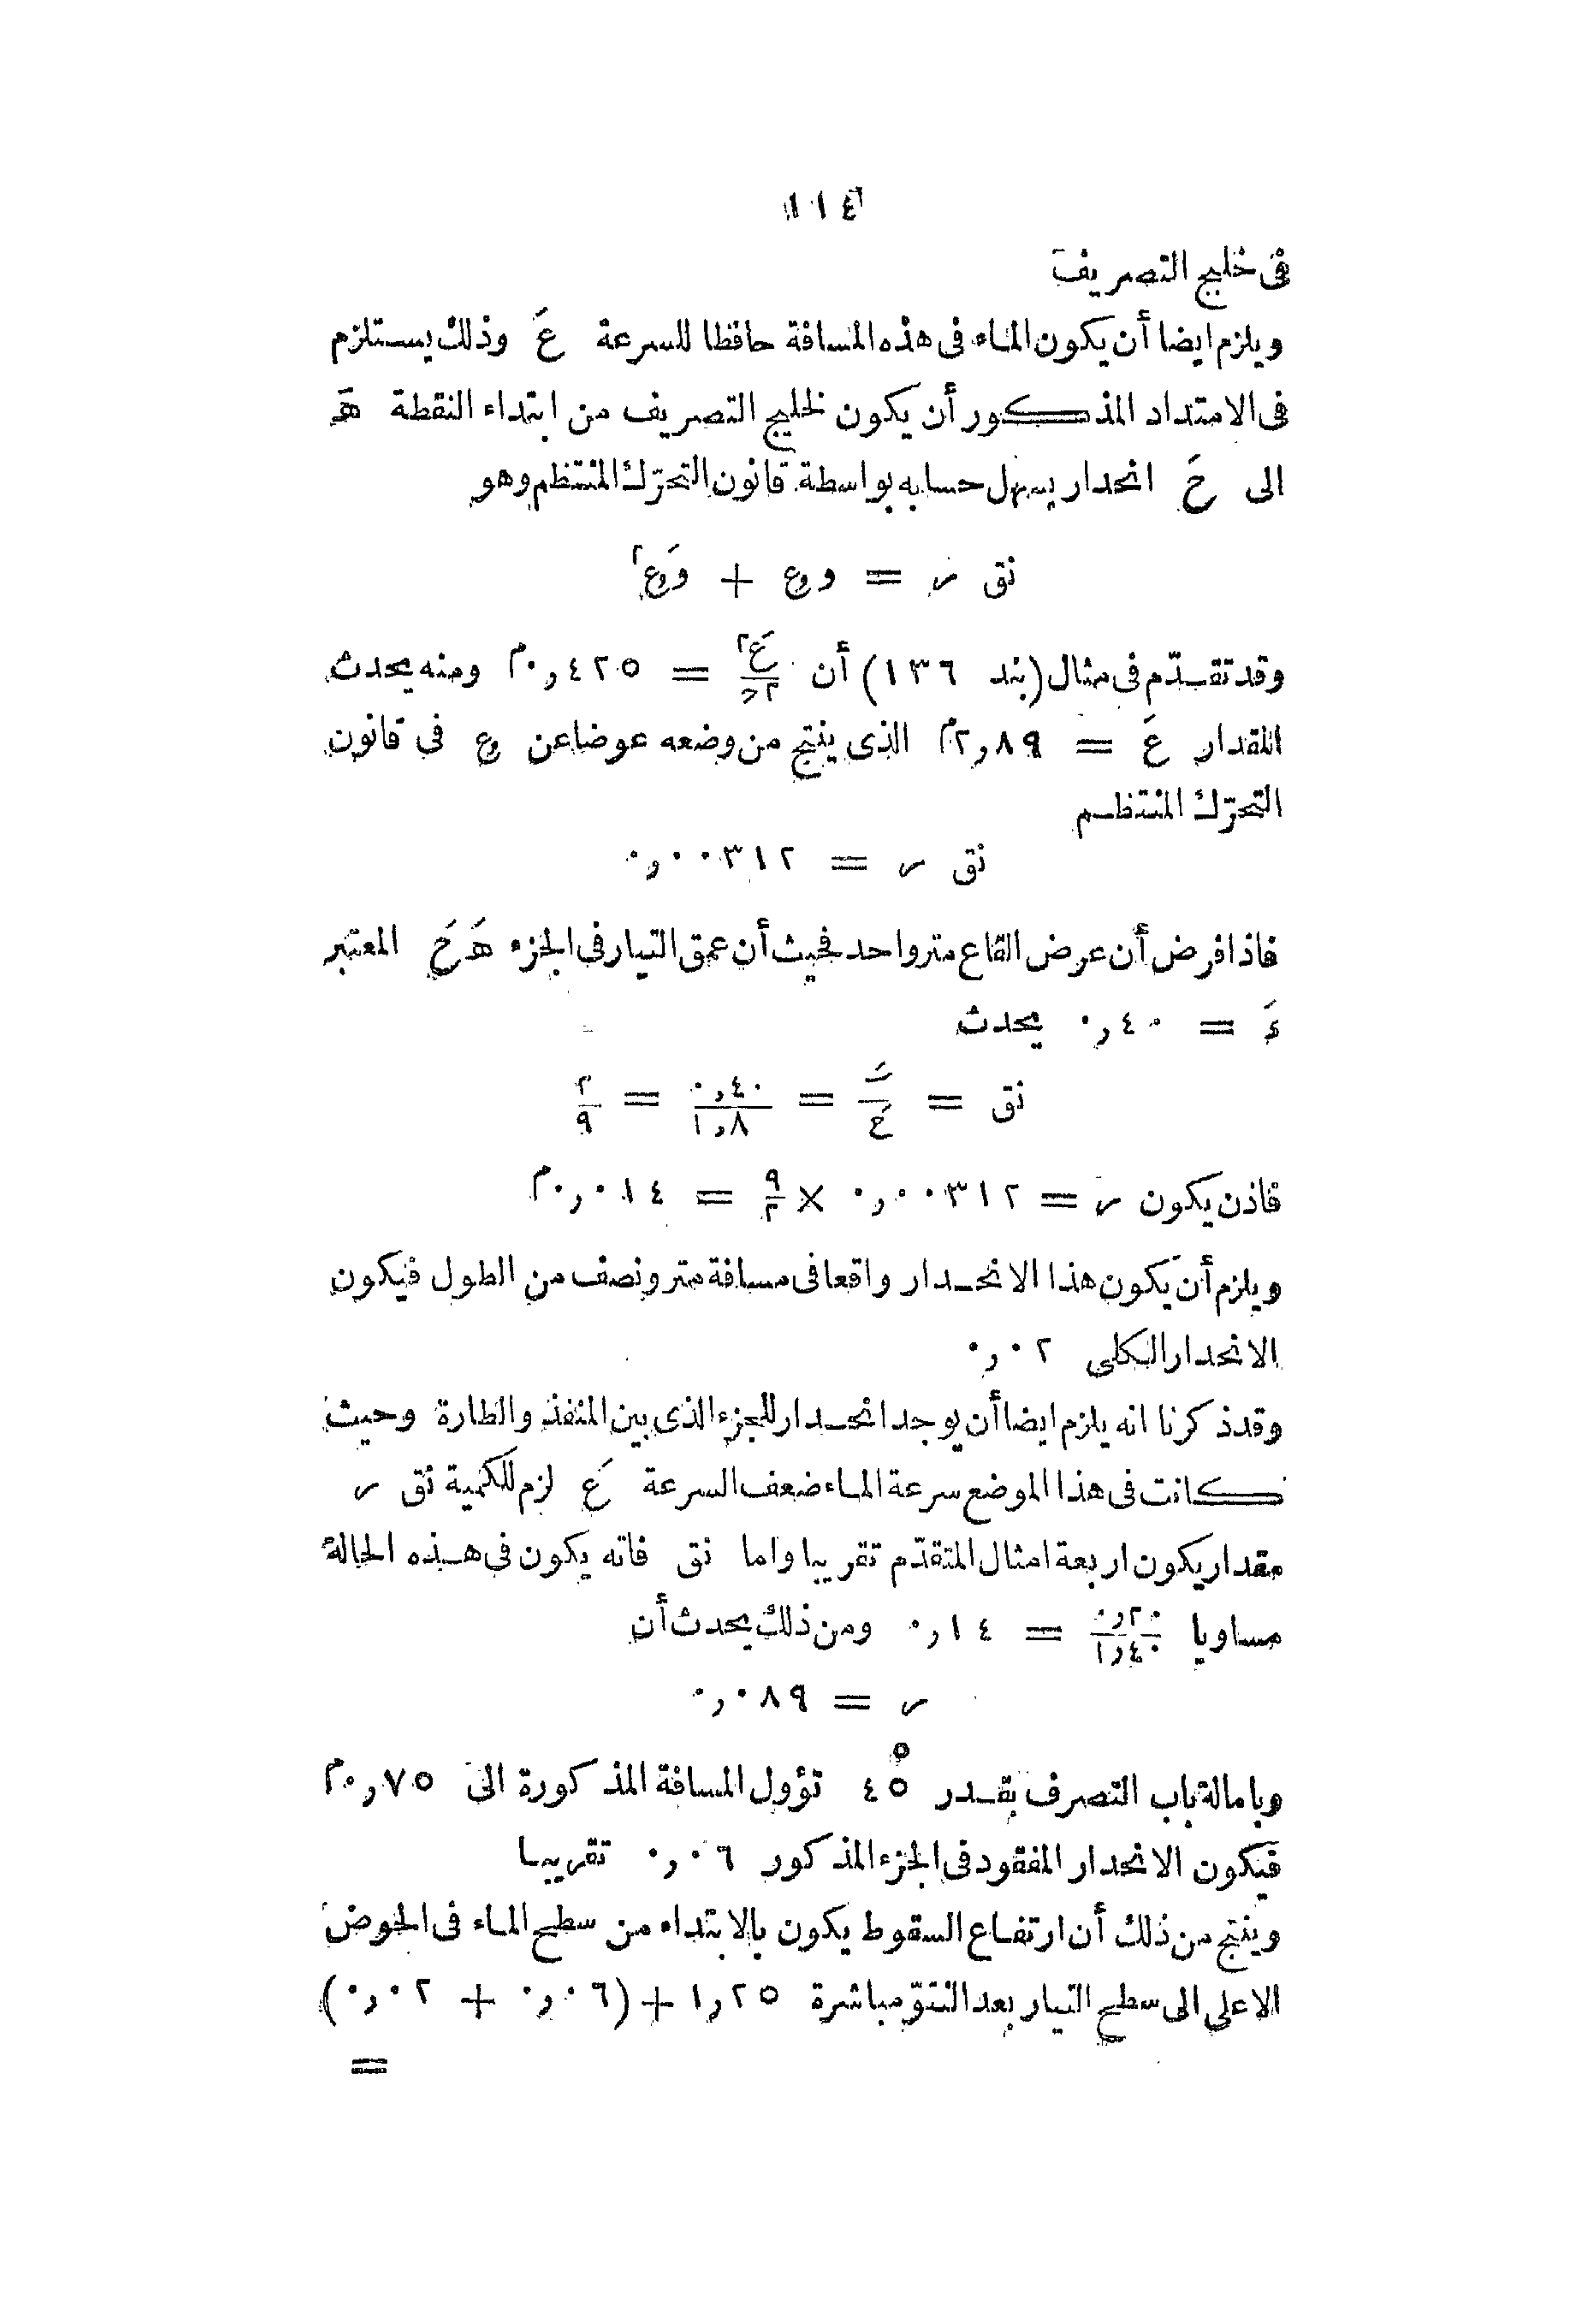 ١١٤
فى خليج التصريف
ويلزم ايضا أن يكون الماء فى هذه المسافة حافظا للسرعة عَ وذلك يستلزم
فى الامتداد المذكور أن يكون لخليج التصريف من ابتداء النقطة هَ
الى حَ انحدار يسهل حسابه بواسطة قانون التحرّك المنتظم وهو
نق ر = و ع + وَ ع٢
وقد تقدّم فى مثال (بند ١٣٦) أن عَ٢/٢ح = ٠,٤٢٥م ومنه يحدث
المقدار عَ = ٢,٨٩م الذى ينتج من وضعه عوضا عن ع فى قانون
التحرّك المنتظم
نق ر = ٠,٠٠٣١٢
فاذا فرض أن عرض القاع متر واحد فحيث أن عمق التيار فى الجزء هَ حَ المعتبر
ءَ = ٠,٤٠ يحدث
نق = ــَ/حَ = ٠,٤٠/١,٨ = ٢/٩
فاذن يكون ر = ٠,٠٠٣١٢ × ٩/٢ = ٠,٠١٤م
ويلزم أن يكون هذا الانحدار واقعا فى مسافة متر ونصف من الطول فيكون
الانحدار الكلى ٠,٠٢
وقد ذكرنا انه يلزم ايضا أن يوجد انحدار للجزء الذى بين المنفذ والطارة وحيث
كانت فى هذا الموضع سرعة الماء ضعف السرعة عَ لزم للكمية نق ر
مقدار يكون اربعة امثال المتقدّم تقريبا واما نق فانه يكون فى هذه الحالة
مساويا ٠,٢٠/١,٤٠ = ٠,١٤ ومن ذلك يحدث أن
ر = ٠,٠٨٩
وبامالة باب التصرف بقدر ٤٥° تؤول المسافة المذكورة الى ٠,٧٥م
فيكون الانحدار المفقود فى الجزء المذكور ٠,٠٦ تقريبا
وينتج من ذلك أن ارتفاع السقوط يكون بالابتداء من سطح الماء فى الحوض
الاعلى الى سطح التيار بعد النتوّ مباشرة ١,٢٥ + (٠,٠٦ + ٠,٠٢)
=